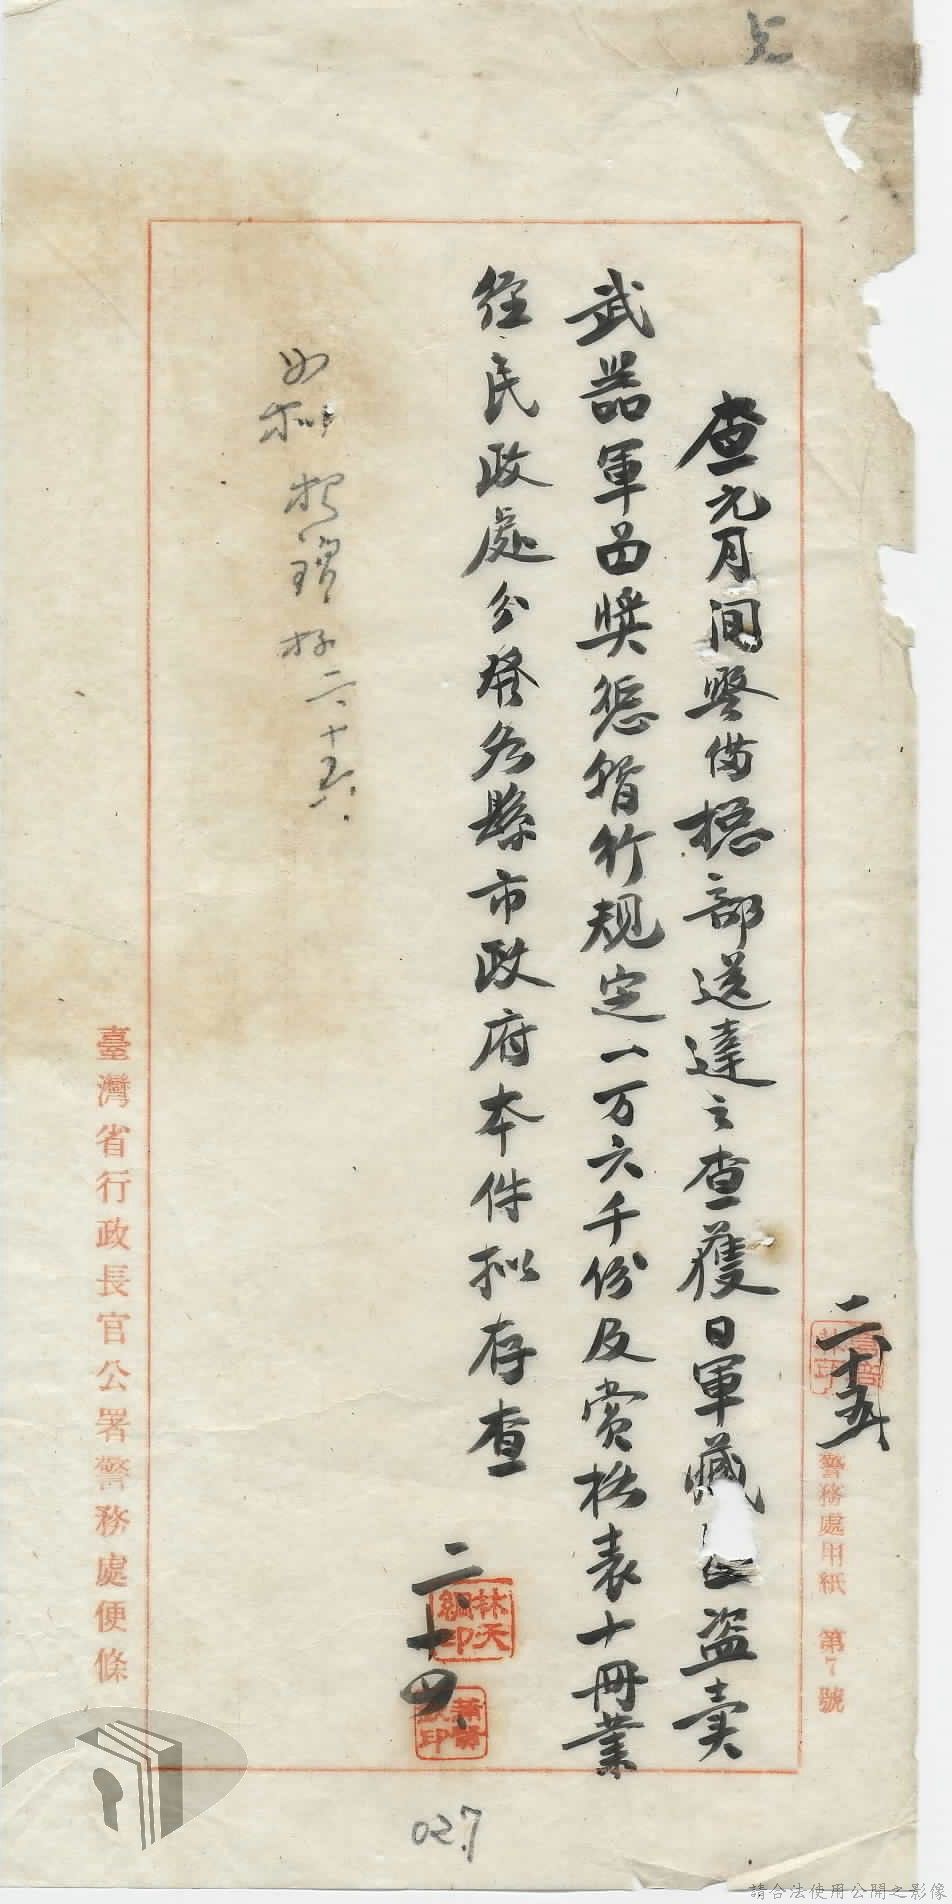 查元月间警备捴部送達之查獲日軍藏盗卖
武器軍品奬懲暂行规定一万六千份及赏格表十冊業
经民政處分發各縣市政府本件拟存查
二、十四、
林天綱印
如拟
二、十五、
二、十五
警務處用紙 第7號
臺灣省行政長官公署警務處便條
027
請合法使用公開之影像